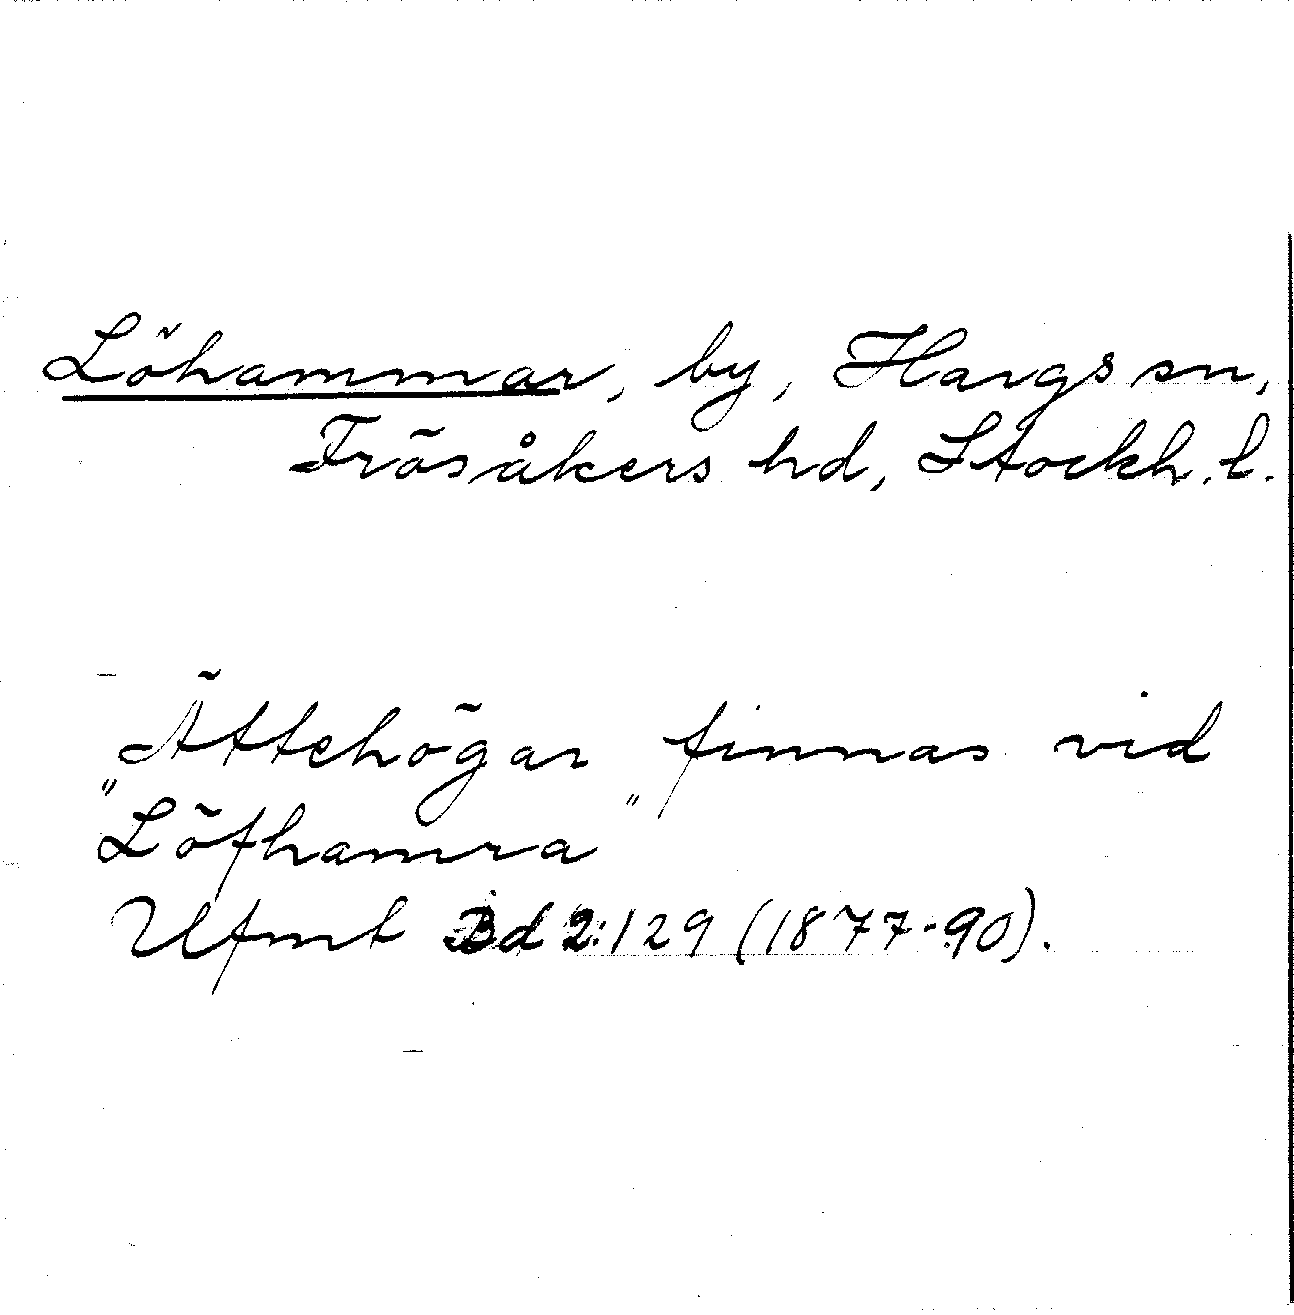 Löhammar, by, Hargs sn,
Frösåkers hd, Stockh. l.
Ättehögar finnas vid
"Löfhamra"
Ufmt Bd 2:129 (1877-90).